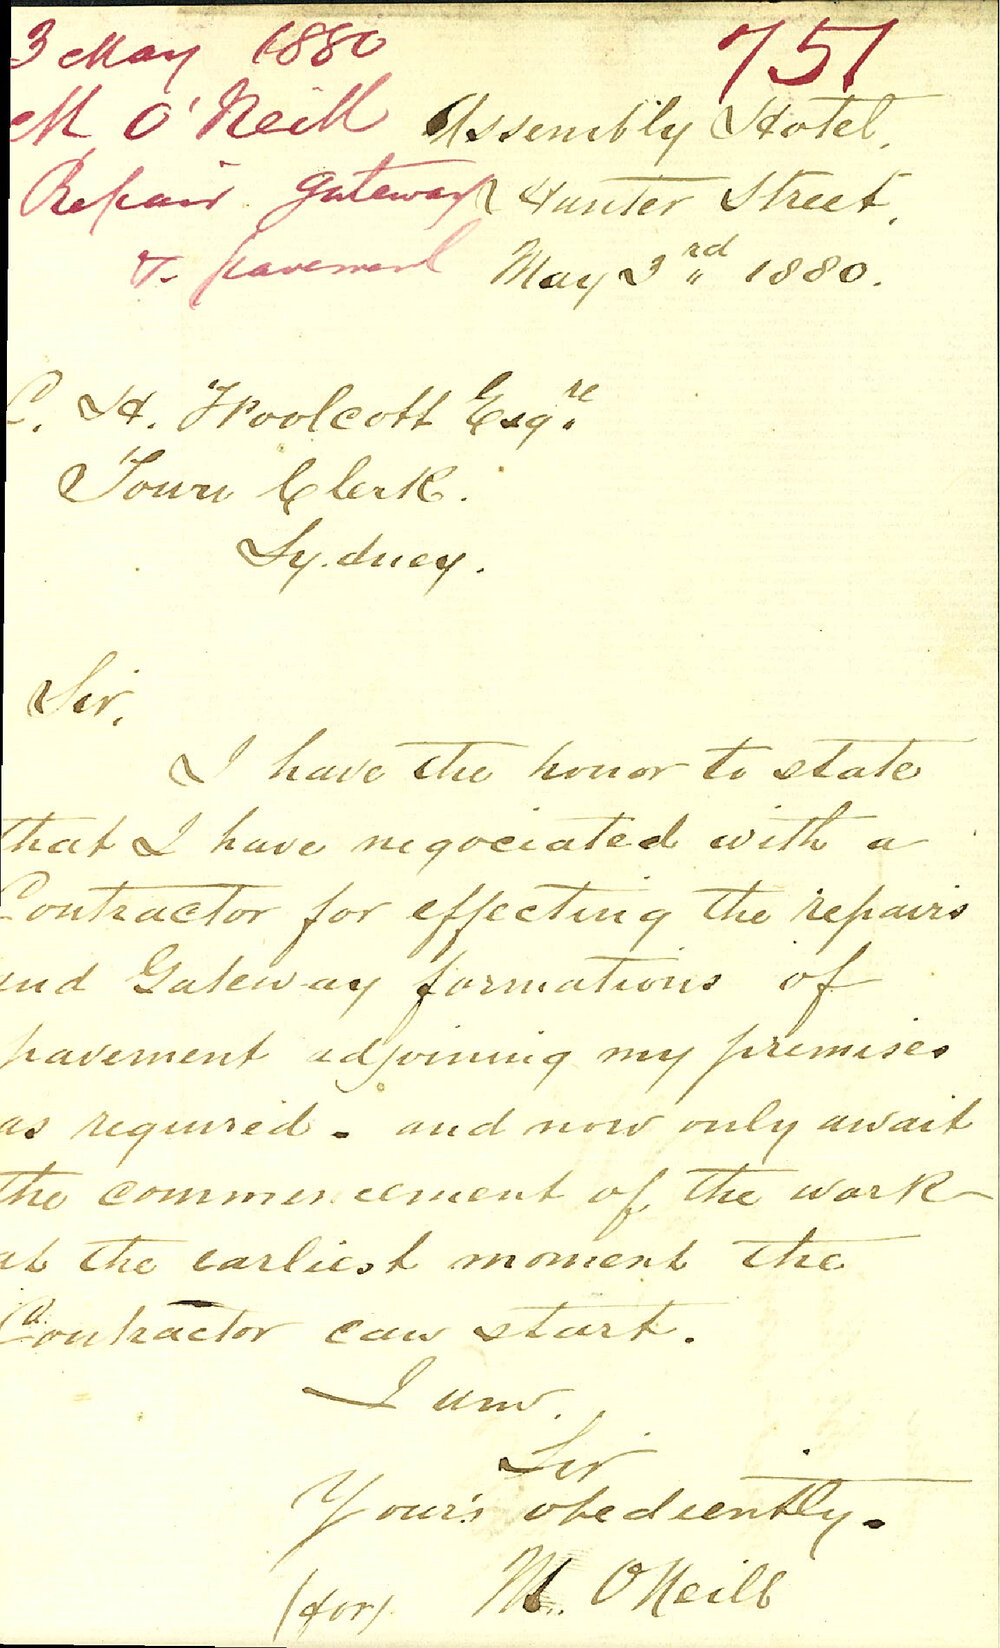 3 May 1880
751
M. O'Neill
Repair gateway
& pavement
Assembly Hotel,
Hunter Street,
May 3rd 1880.
C. H. Woolcott Esqre
Town Clerk.
Sydney.
Sir,
I have the honor to state
that I have negociated with a
Contractor for effecting the repairs
and Gateway formations of
pavement adjoining my premises
as required - and now only await
the commencement of, the work
at the earliest moment the
Contractor can start.
I am.
Sir
Your's obediently.
(for) M. O'Neill